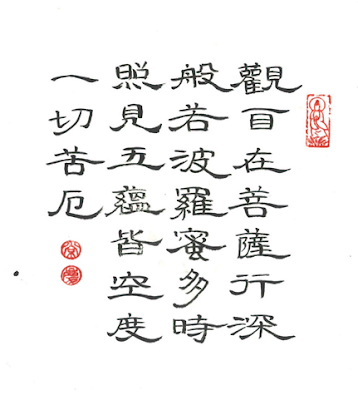 觀自在菩薩行深
般若波羅蜜多時
照見五蘊皆空度
一切苦厄